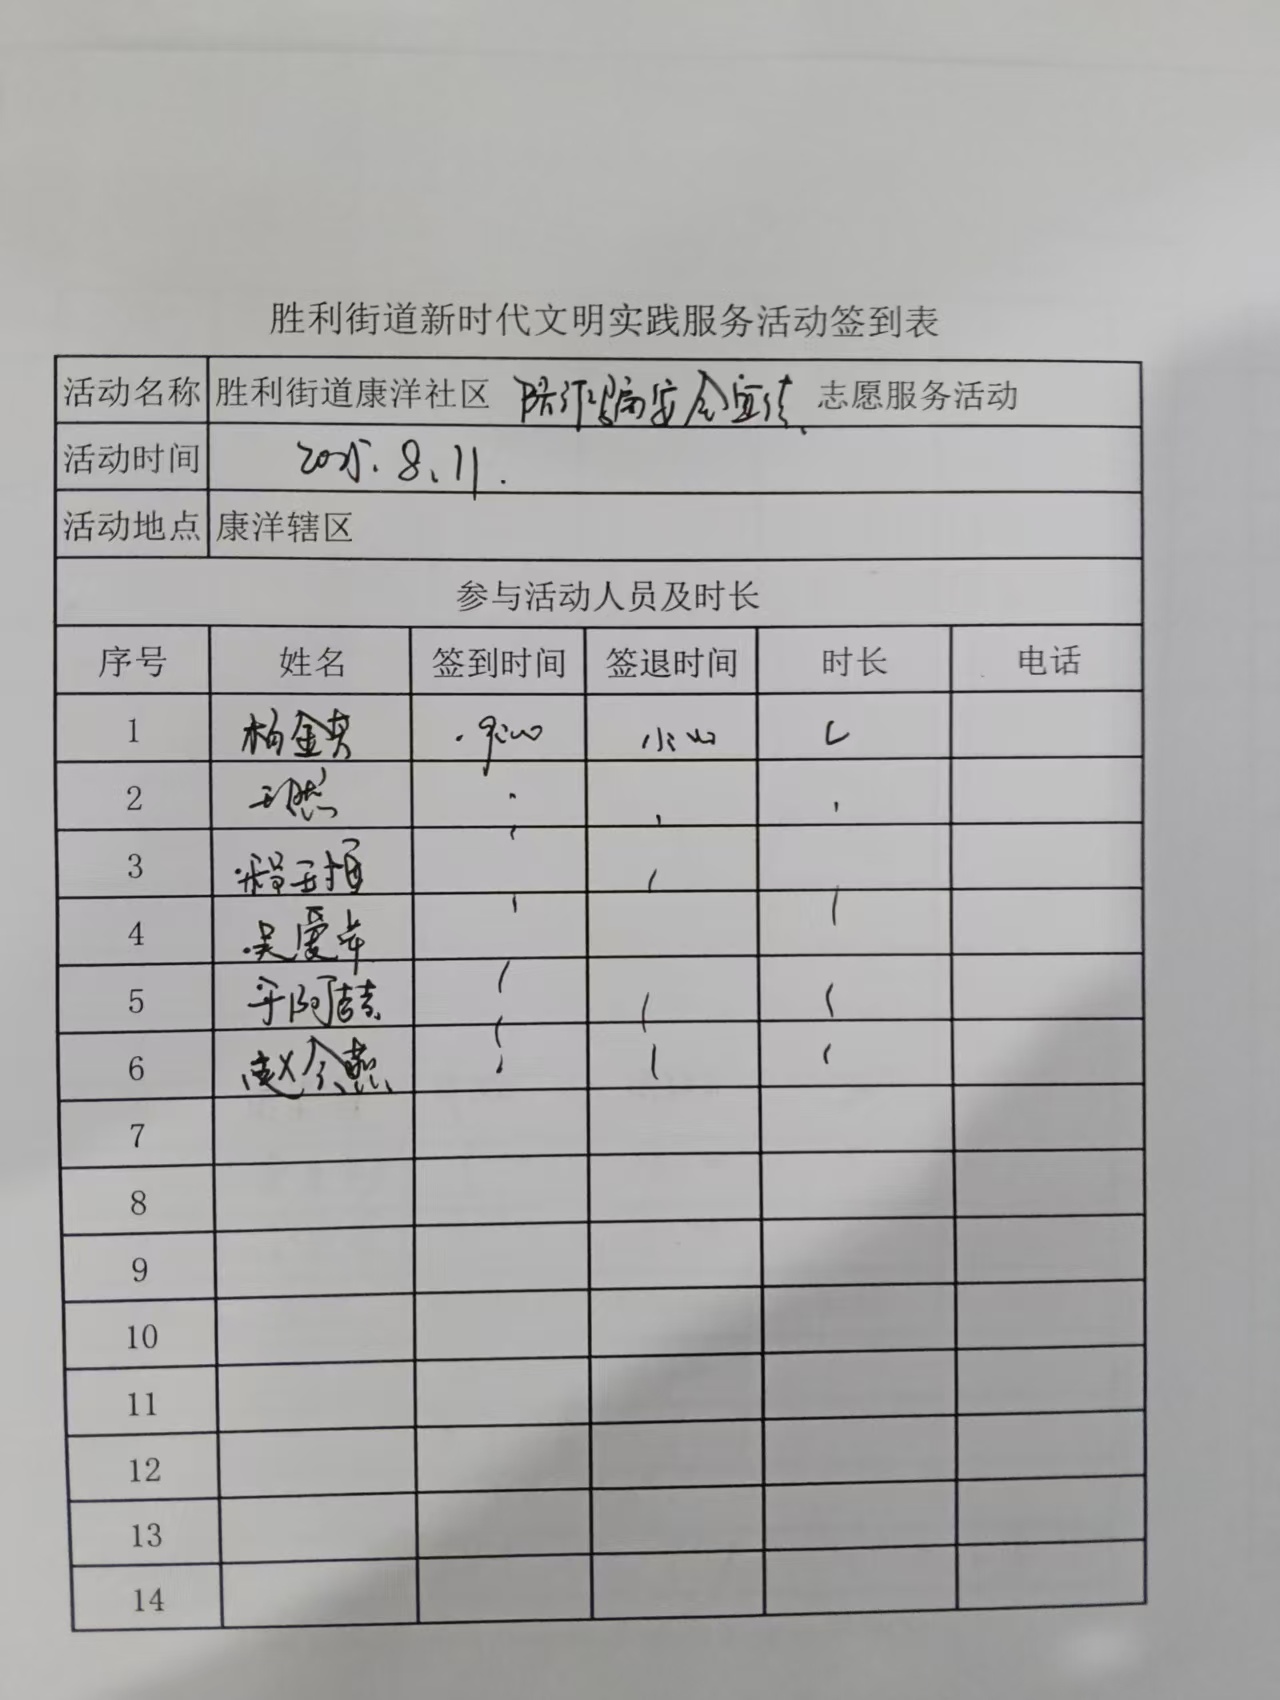 胜利街道新时代文明实践服务活动签到表
活动名称 胜利街道康洋社区 防诈骗安全宣传 志愿服务活动
活动时间 2025.8.11.
活动地点 康洋辖区
参与活动人员及时长
序号 姓名 签到时间 签退时间 时长 电话
1 柏金夫 9:00
2 王燃
3
4 吴爱华
5 平阿喆
6 赵余燕
7
8
9
10
11
12
13
14